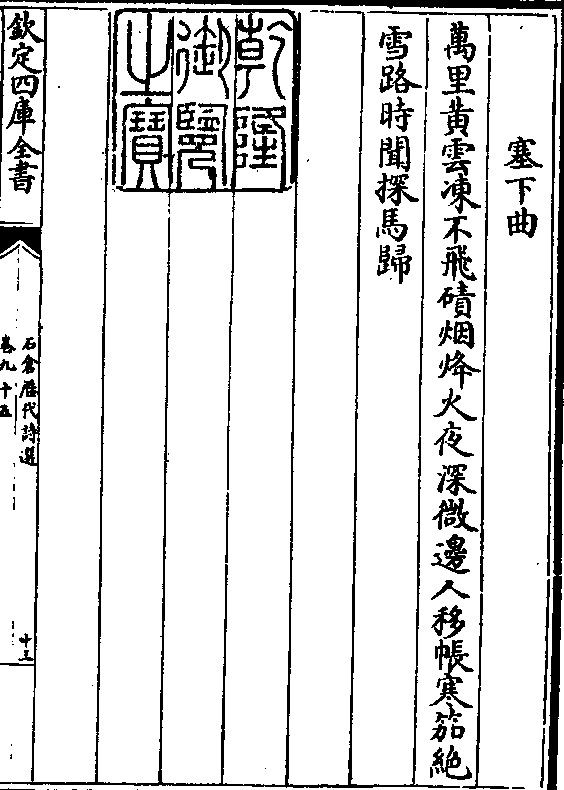 塞下曲
萬里黄雲凍不飛磧烟烽火夜深微邊人移帳寒笳絶
雪路時聞探馬歸
乾隆
御覽
之寶
欽定四庫全書
石倉歴代詩選
卷九十五
十三